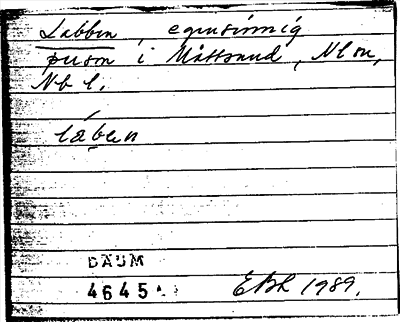 Labben, egensinnig
person i Måttsund, Nl sn,
Nb l.
lábben
DAUM
4645
EBL 1989.